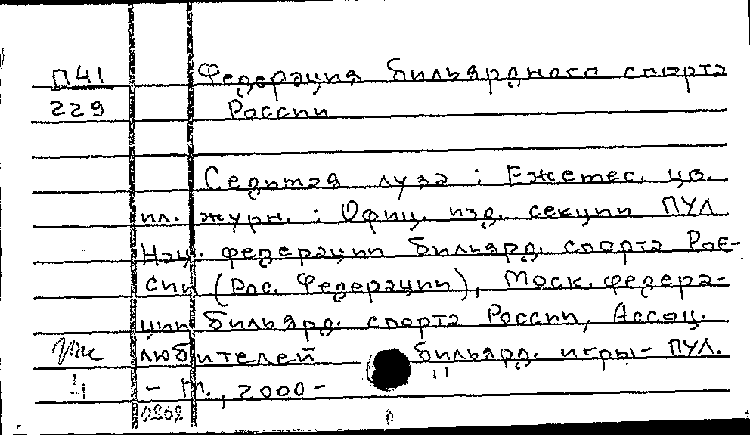 П41 Федерация бильярдного спорта
229 России
Седьмая луза : Ежемес. цв.
ил. журн. : Офиц. изд. секции ПУЛ
Нац. федерации бильярд. спорта Рос-
сии (Рос. Федерации), Моск. федера-
ции бильярд. спорта России, Ассоц.
любителей бильярд. игры - ПУЛ.
- М., 2000 -